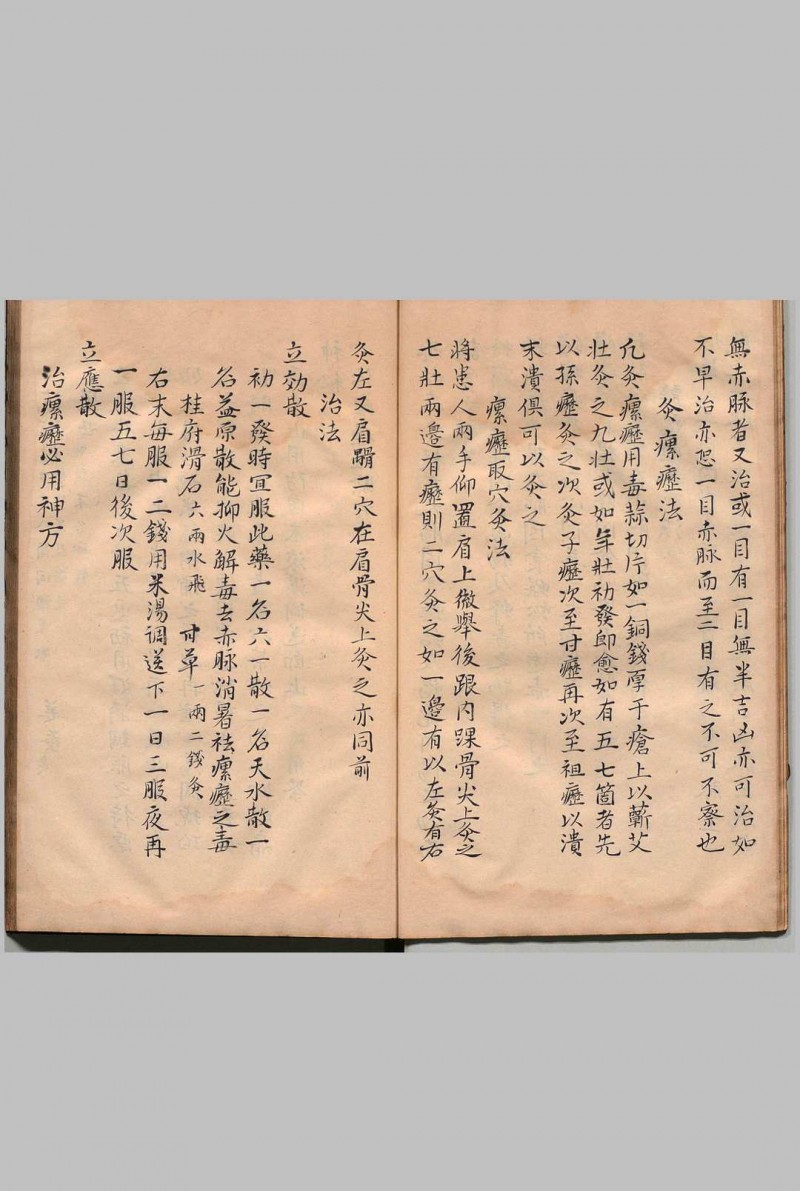 無赤脉者又治或一目有一目無半吉凶亦可治如
不早治亦恐一目赤脉而至二目有之不可不察也
灸瘰癧法
凢灸瘰癧用毒蒜切片如一銅錢厚于瘡上以蘄艾
壮灸之九壮或如年壮初發即愈如有五七箇者先
以孫癧灸之次灸子癧次至甘癧再次至祖癧以潰
末潰俱可以灸之
瘰癧取穴灸法
將患人兩手仰置肩上微舉後跟内踝骨尖上灸之
七壯兩邉有癧則二穴灸之如一邉有以左灸有右
灸左又肩髃二穴在肩骨尖上灸之亦同前
治法
立効散
初一發時宜服此藥一名六一散一名天水散一
名益原散能抑火解毒去赤脉消暑祛瘰癧之毒
桂府滑石六兩水飛 甘草一兩二錢灸
右末每服一二錢用米湯調送下一日三服夜再
一服五七日後次服
立應散
治瘰癧必用神方